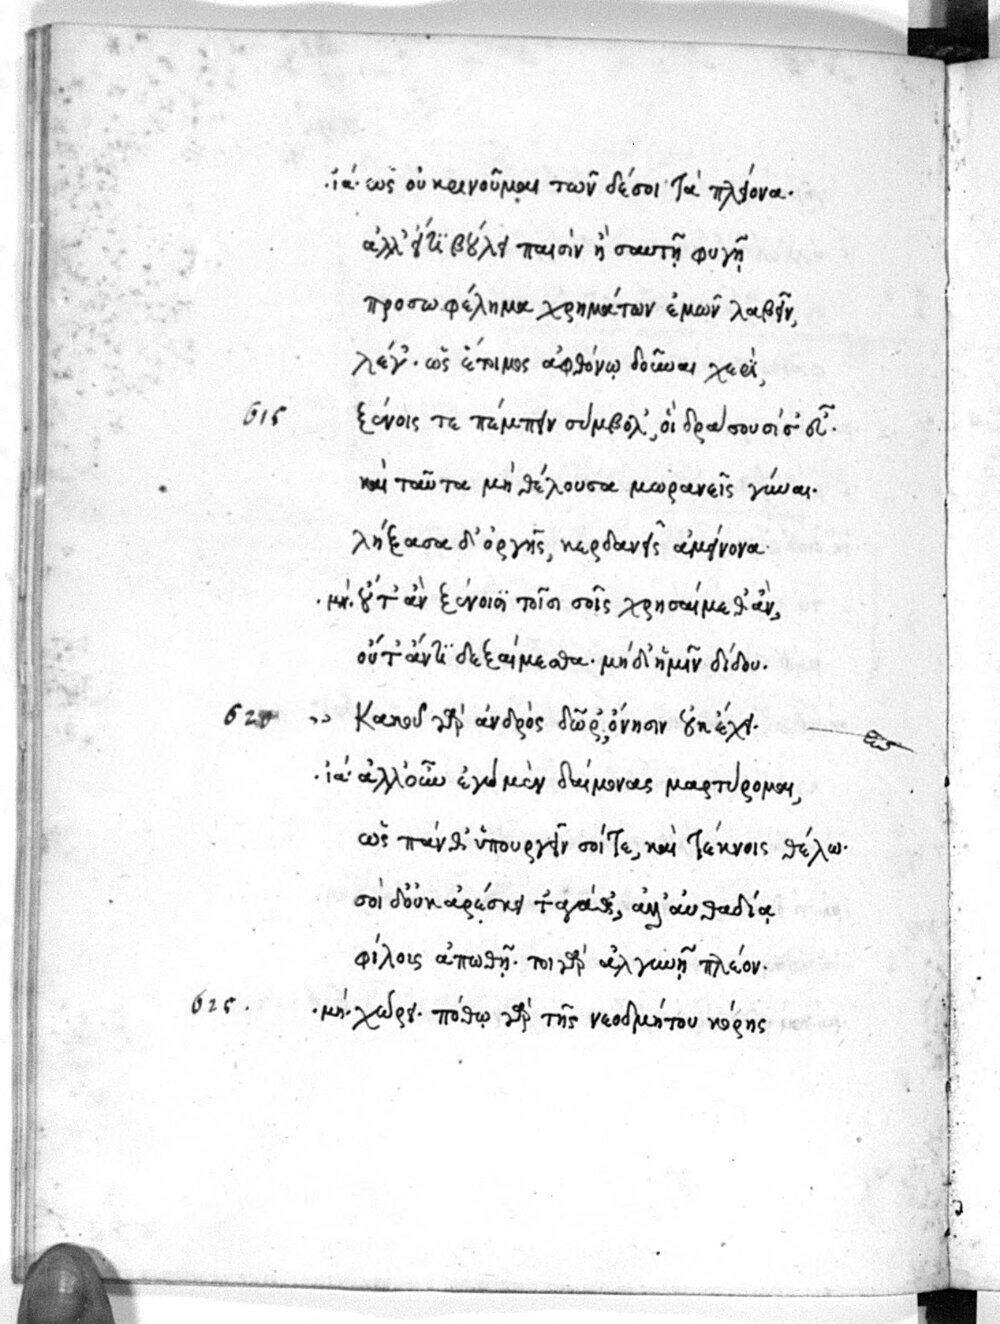 ·ἰά· ὡς οὐ κρινοῦμαι τῶν δέ σοι τὰ πλείονα·
ἀλλ' εἴτι βούλει παισὶν ἢ σαυτῇ φυγῇ
προσωφέλημα χρημάτων ἐμῶν λαβεῖν,
λέγ'· ὡς ἕτοιμος ἀφθόνῳ δοῦναι χερὶ,
615 ξένοις τε πέμπειν σύμβολ', οἳ δράσουσί σ' εὖ·
καὶ ταῦτα μὴ θέλουσα μωρανεῖς γύναι·
λήξασα δ' ὀργῆς, κερδανεῖς ἀμείνονα·
·μή· οὔτ' ἂν ξένοισι τοῖσι σοῖς χρησαίμεθ' ἂν,
οὔτ' ἄντι δεξαίμεθα· μήδ' ἡμῖν δίδου·
620 ,, Κακοῦ γὰρ ἀνδρὸς δῶρ', ὄνησιν οὐκ ἔχει·
·ἰά· ἀλλ' οὖν ἐγὼ μὲν δαίμονας μαρτύρομαι,
ὡς πάνθ' ὑπουργεῖν σοί τε, καὶ τέκνοις θέλω·
σοὶ δ' οὐκ ἀρέσκει τἀγάθ', ἀλλ' αὐθαδίᾳ
φίλοις ἀπωθῇ· τοιγὰρ ἀλγυνῇ πλέον·
625· ·μή· χώρει· πόθῳ γὰρ τῆς νεοδμήτου κόρης